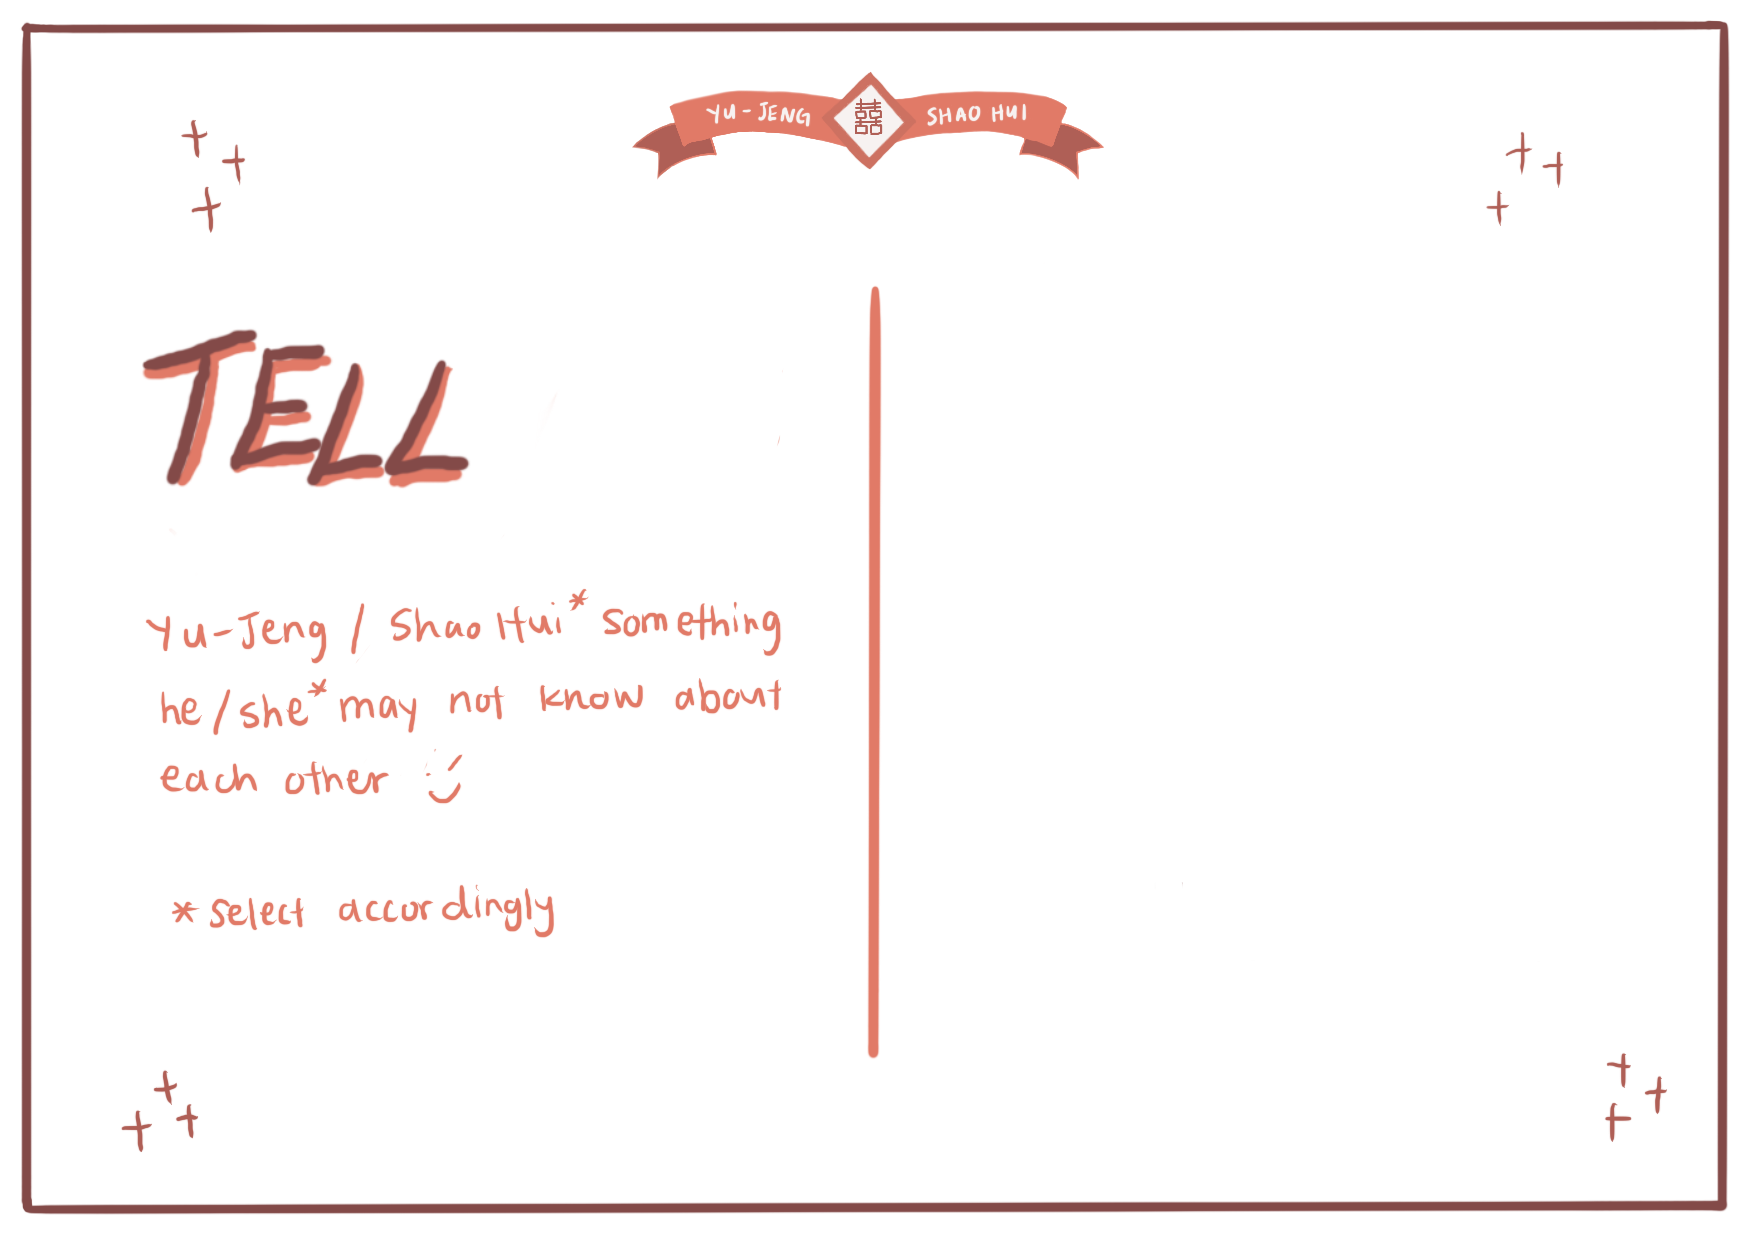 YU-JENG 囍 SHAO HUI
TELL
Yu-Jeng / Shao Hui* something
he/she* may not know about
each other
*select accordingly